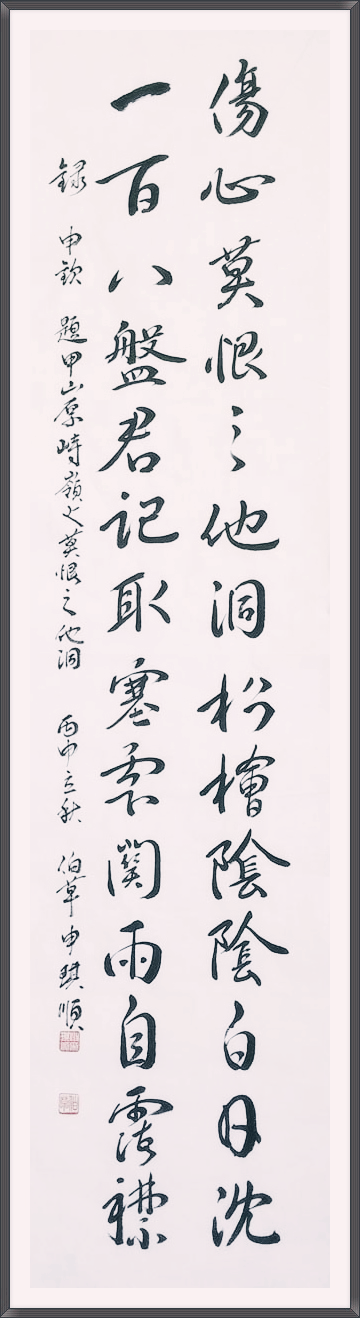 傷心莫恨之他洞松檜陰陰白日沈
一百八盤君記取塞雲關雨自霑襟
錄 申欽 題甲山原峙嶺莫恨之他洞 丙申立秋 伯草 申琪順